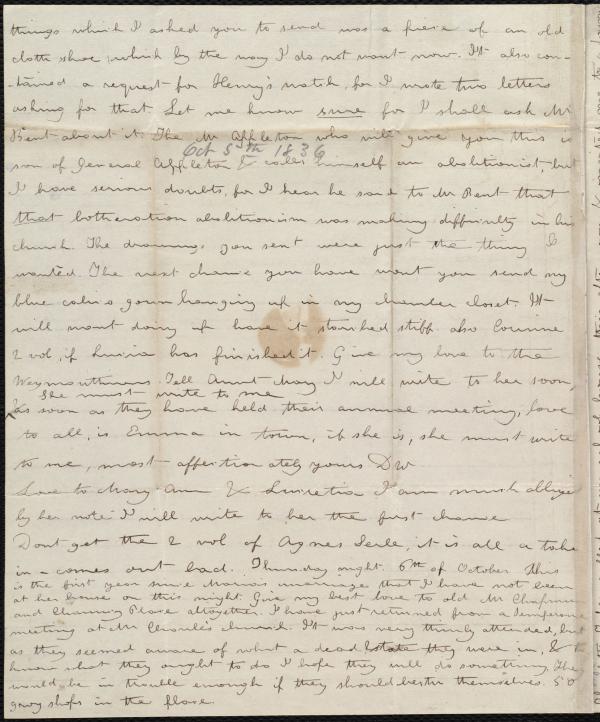 things which I asked you to send was a piece of an old
cloth shoe, which by the way I do not want now. It also con-
-tained a request for Henry's watch, for I wrote two letters
asking for that Let me know sure for I shall ask Mr
Bent about it. The Mr Appleton who will give you this is
Oct 5th 1836
son of General Appleton & calls himself an abolitionist, but
I have serious doubts, for I hear he said to Mr Bent that
that botheration abolitionism was making difficulty in his
church. The drawings you sent were just the thing I
wanted. The next chance you have wont you send my
blue calico gown hanging up in my chamber closet. It
will want doing up have it starched stiff. also Corinne
2 vol, if Lucia has finished it. Give my love to the
Weymouthians. Tell Aunt Mary I will write to her soon,
She must write to me
& as soon as they have held their annual meeting, love
to all, is Emma in town, if she is, she must write
to me, most affectionately yours DW
Love to Mary Ann & Lucretia I am much obliged
by her note I will write to her the first chance
Dont get the 2 vol of Agnes Serle, it is all a take
in - comes out bad. Thursday night. 6th of October this
is the first year since Maria's marriage that I have not been
at her house on this night. Give my best love to old Mr Chapman
and Chauncy Place altogether. I have just returned from a Temperance
meeting at Mr Choule's church. It was very thinly attended, but
as they seemed aware of what a dead state they were in, & to
know what they ought to do I hope they will do something. There
would be in trouble enough if they should bestir themselves. 50
grog shops in the place.